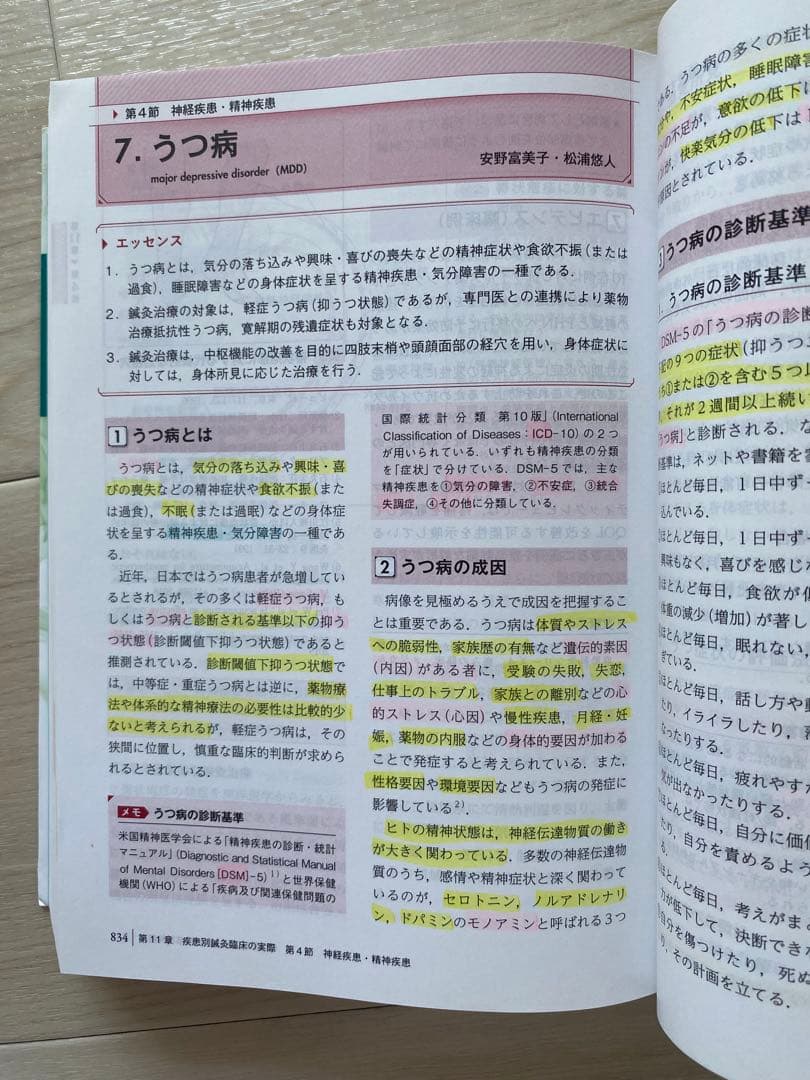 第4節 神経疾患・精神疾患
7. うつ病
major depressive disorder（MDD）
安野富美子・松浦悠人
エッセンス
1. うつ病とは，気分の落ち込みや興味・喜びの喪失などの精神症状や食欲不振（または
過食），睡眠障害などの身体症状を呈する精神疾患・気分障害の一種である．
2. 鍼灸治療の対象は，軽症うつ病（抑うつ状態）であるが，専門医との連携により薬物
治療抵抗性うつ病，寛解期の残遺症状も対象となる．
3. 鍼灸治療は，中枢機能の改善を目的に四肢末梢や頭顔面部の経穴を用い，身体症状に
対しては，身体所見に応じた治療を行う．
1 うつ病とは
うつ病とは，気分の落ち込みや興味・喜
びの喪失などの精神症状や食欲不振（また
は過食），不眠（または過眠）などの身体症
状を呈する精神疾患・気分障害の一種であ
る．
近年，日本ではうつ病患者が急増してい
るとされるが，その多くは軽症うつ病，も
しくはうつ病と診断される基準以下の抑う
つ状態（診断閾値下抑うつ状態）であると
推測されている．診断閾値下抑うつ状態で
は，中等症・重症うつ病とは逆に，薬物療
法や体系的な精神療法の必要性は比較的少
ないと考えられるが，軽症うつ病は，その
狭間に位置し，慎重な臨床的判断が求めら
れるとされている．
メモ うつ病の診断基準
米国精神医学会による「精神疾患の診断・統計
マニュアル」（Diagnostic and Statistical Manual
of Mental Disorders [DSM]-5）1）と世界保健
機関（WHO）による「疾病及び関連保健問題の
国際統計分類 第10版」（International
Classification of Diseases：ICD-10）の2つ
が用いられている．いずれも精神疾患の分類
を「症状」で分けている．DSM-5では，主な
精神疾患を①気分の障害，②不安症，③統合
失調症，④その他に分類している．
2 うつ病の成因
病像を見極めるうえで成因を把握するこ
とは重要である．うつ病は体質やストレス
への脆弱性，家族歴の有無など遺伝的素因
（内因）がある者に，受験の失敗，失恋，
仕事上のトラブル，家族との離別などの心
的ストレス（心因）や慢性疾患，月経・妊
娠，薬物の内服などの身体的要因が加わる
ことで発症すると考えられている．また，
性格要因や環境要因などもうつ病の発症に
影響している2）．
ヒトの精神状態は，神経伝達物質の働き
が大きく関わっている．多数の神経伝達物
質のうち，感情や精神症状と深く関わって
いるのが，セロトニン，ノルアドレナリ
ン，ドパミンのモノアミンと呼ばれる3つ
834 第11章 疾患別鍼灸臨床の実際 第4節 神経疾患・精神疾患
ある．うつ病の多くの症状
不安症状，睡眠障害
の不足が，意欲の低下
が，快楽気分の低下は
因とされている．
うつ病の診断基準
うつ病の診断基準
DSM-5の「うつ病の診断
の9つの症状（抑うつ
①または②を含む5つ以
それが2週間以上続い
うつ病」と診断される．な
基準は，ネットや書籍を
ほとんど毎日，1日中ず
込んでいる．
ほとんど毎日，1日中ず
興味もなく，喜びを感じ
ほとんど毎日，食欲が低
体重の減少（増加）が著し
ほとんど毎日，眠れない，
ぎている．
ほとんど毎日，話し方や動
たり，イライラしたり，
なったりする．
ほとんど毎日，疲れやす
気が出なかったりする．
ほとんど毎日，自分に価値
たり，自分を責めるよう
る．
ほとんど毎日，考えがま
力が低下して，決断でき
自分を傷つけたり，死
り，その計画を立てる．